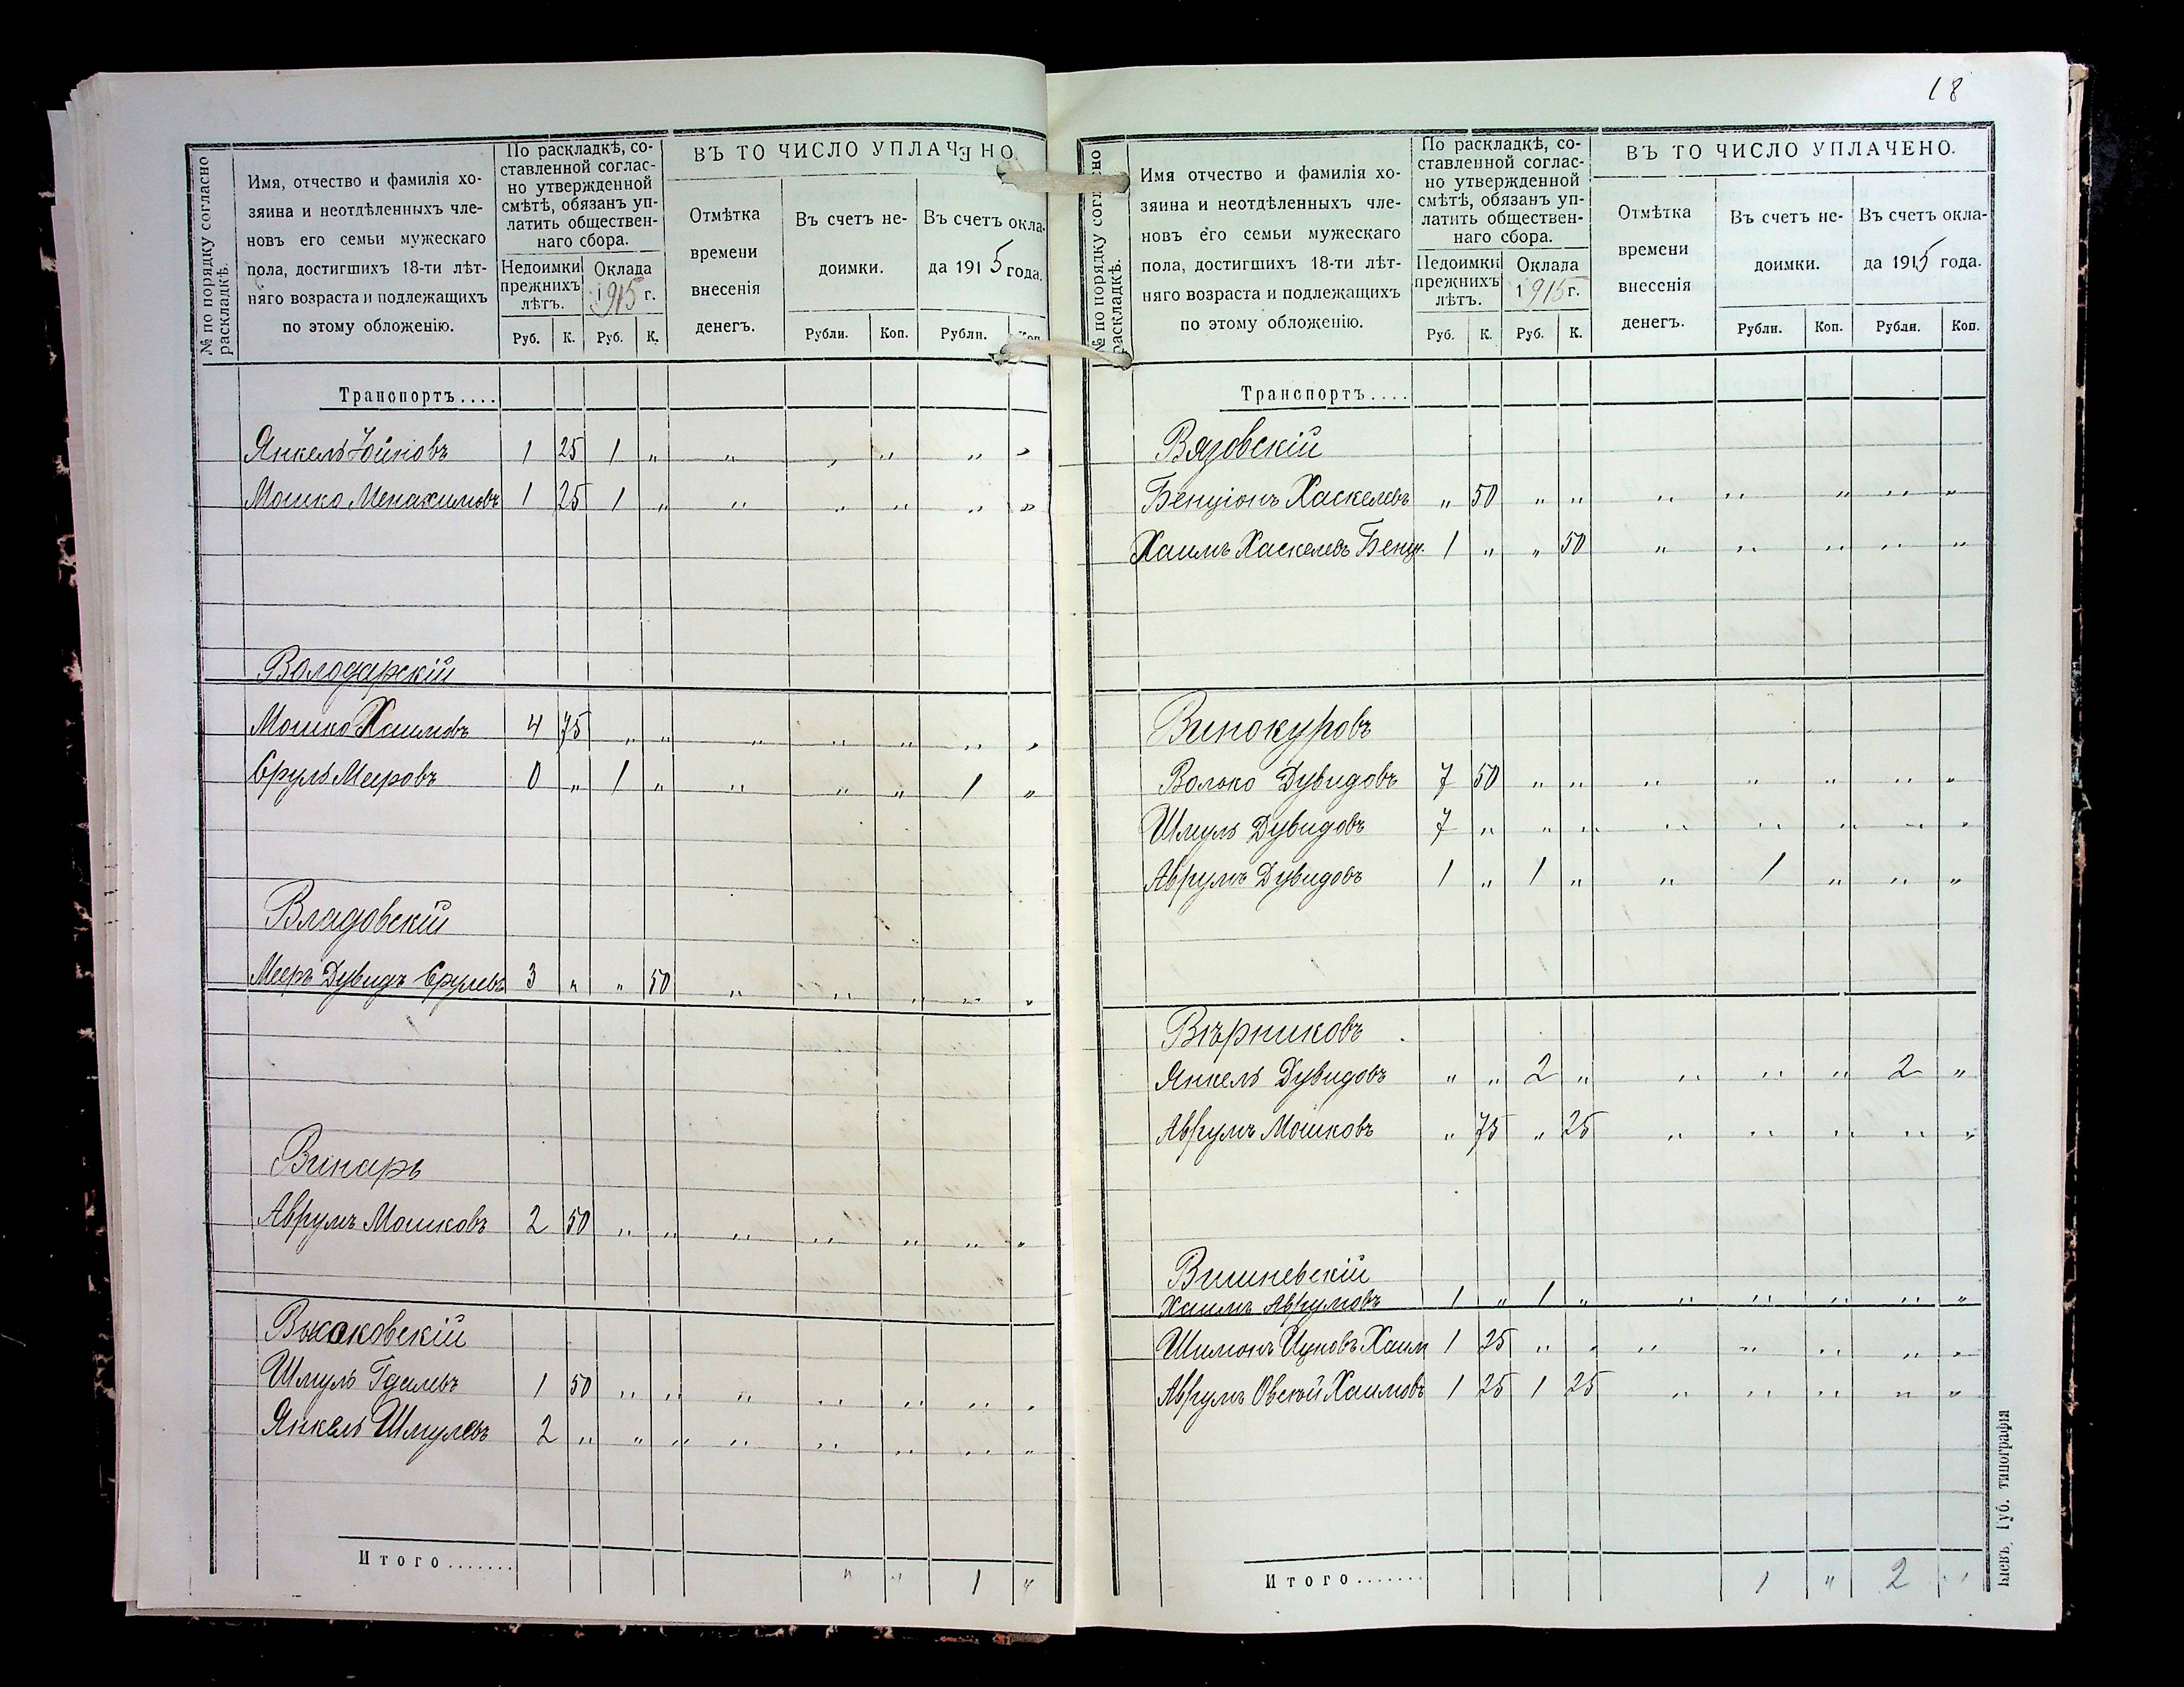 18
№ по порядку согласно раскладкѣ.
Имя, отчество и фамилія хо-
зяина и неотдѣленныхъ чле-
новъ его семьи мужескаго
пола, достигшихъ 18-ти лѣт-
няго возраста и подлежащихъ
по этому обложенію.
По раскладкѣ, со-
ставленной соглас-
но утвержденной
смѣтѣ, обязанъ уп-
латить обществен-
наго сбора.
Недоимки прежнихъ лѣтъ.
Оклада 1915 г.
Руб. К. Руб. К.
ВЪ ТО ЧИСЛО УПЛАЧЕНО
Отмѣтка
времени
внесенія
денегъ.
Въ счетъ не-
доимки.
Въ счетъ окла-
да 1915 года.
Рубли. Коп. Рубли. Коп.
Транспортъ....
Янкель Юйновъ 1 25 1 " " " " " "
Мошко Менахимовъ 1 25 1 " " " " " "
Володарскій
Мошко Хаимовъ 4 75 " " " " " " "
Сруль Мееровъ 0 " 1 " " " " 1 "
Владовскій
Мееръ Дувидъ Срулевъ 3 " " 50 " " " " "
Винаръ
Аврумъ Мошковъ 2 50 " " " " " " "
Шмуль Гдалевъ 1 50 " " " " " " "
Янкель Шмулевъ 2 " " " " " " " "
Итого....... " " 1 "
№ по порядку согласно раскладкѣ.
Имя, отчество и фамилія хо-
зяина и неотдѣленныхъ чле-
новъ его семьи мужескаго
пола, достигшихъ 18-ти лѣт-
няго возраста и подлежащихъ
по этому обложенію.
По раскладкѣ, со-
ставленной соглас-
но утвержденной
смѣтѣ, обязанъ уп-
латить обществен-
наго сбора.
Недоимки прежнихъ лѣтъ.
Оклада 1915 г.
Руб. К. Руб. К.
ВЪ ТО ЧИСЛО УПЛАЧЕНО.
Отмѣтка
времени
внесенія
денегъ.
Въ счетъ не-
доимки.
Въ счетъ окла-
да 1915 года.
Рубли. Коп. Рубли. Коп.
Транспортъ....
Вязовскій
Бенціонъ Хаскелевъ " 50 " " " " " " "
Хаимъ Хаскелевъ Бенц. 1 " " 50 " " " " "
Винокуровъ
Волько Дувидовъ 7 50 " " " " " " "
Шмуль Дувидовъ 7 " " " " " " " "
Аврумъ Дувидовъ 1 " 1 " " 1 " " "
Вѣрниковъ
Янкель Дувидовъ " " 2 " " " " 2 "
Аврумъ Мошковъ " 75 " 25 " " " " "
Вишневскій
Хаимъ Аврумовъ 1 " 1 " " " " " "
Шимонъ Ицковъ Хаим 1 25 " " " " " " "
Аврумъ Овсѣй Хаимовъ 1 25 1 25 " " " " "
Итого....... 1 " 2 "
Кіевъ, Губ. типографія